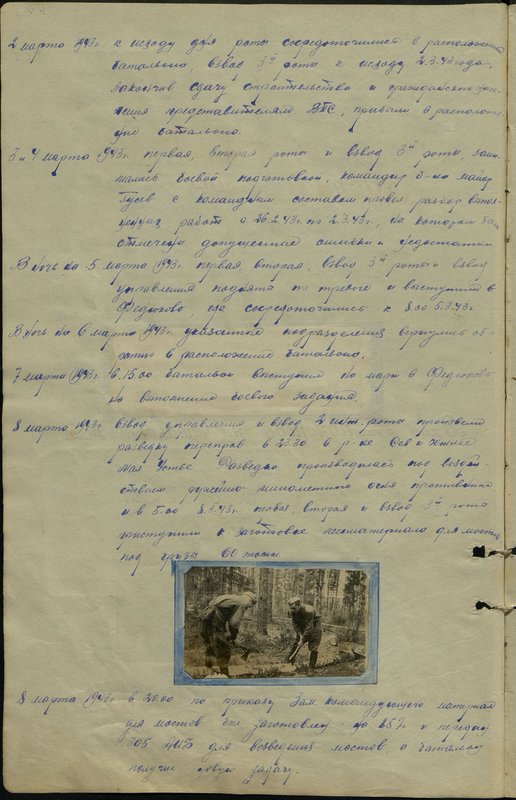 2 марта 1943г. к исходу дня роты сосредоточились в расположении
батальона, взвод 3й роты к исходу 2.3.43 года,
закончив сдачу строительства и
представителям ВПС, прибыли в расположе-
ние батальона.
3 и 4 марта 1943г. первая, вторая роты и взвод 3й роты, зани-
мались боевой подготовкой, командир б-на майор
Гусев с командным составом провел разбор выпол-
ненных работ с 26.2.43г. по 2.3.43г., на котором были
отмечены допущенные ошибки и недостатки.
В ночь на 5 марта 1943г. первая, вторая, взвод 3й роты и взвод
управления подняты по тревоге и выступили в
Федюково, где сосредоточились к 8.00 5.3.43г.
В ночь на 6 марта 1943г. указанные подразделения вернулись об-
ратно в расположение батальона.
7 марта 1943г. в 15.00 батальон выступил на марш в Федюково
на выполнение боевого задания.
8 марта 1943г. взвод управления и взвод 2 инж. роты произвели
разведку переправ в 23.30 в р-не Сев. и южнее
мал. Устье. Разведка производилась под воздей-
ствием ружейно-минометного огня противника
и в 5.00 8.3.43г. первая, вторая и взвод 3й роты
приступили к заготовке лесоматериала для мостов
под грузы 60 тонн.
8 марта 1943г. в 20.00 по приказу Зам. командующего материал
для мостов был заготовлен до 85% и передан
для возведения мостов а батальон
получил новую задачу.